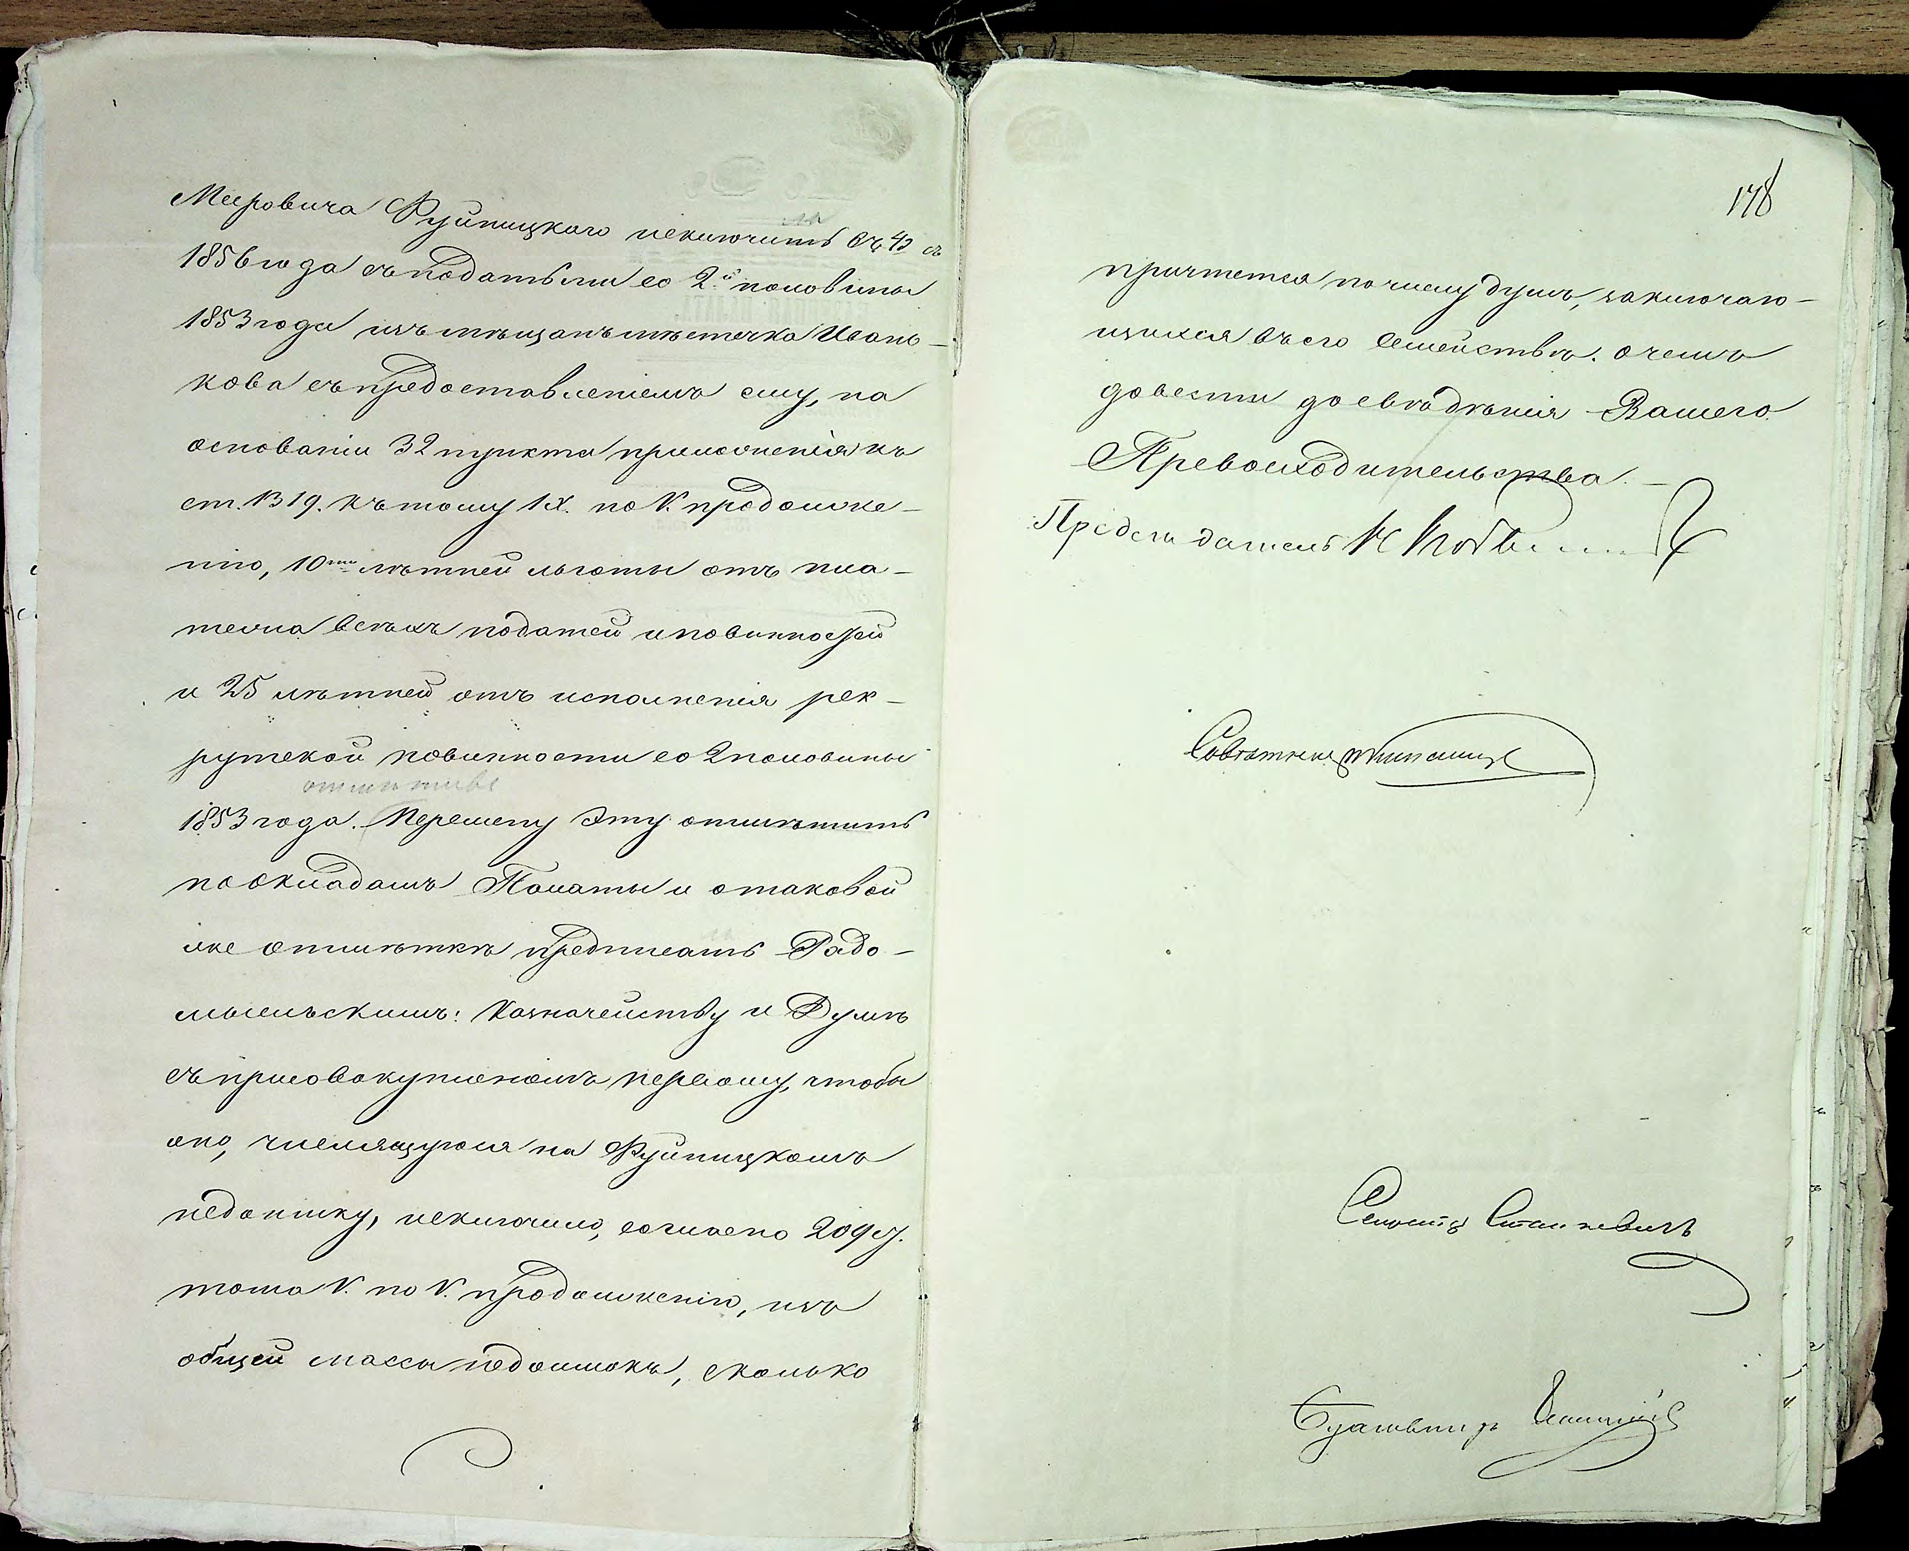 Мееровича Фуйницкого исключить съ 42 съ
1856 года съ податьми со 2й половины
1853 года изъ мѣщанъ мѣстечка Ивань-
кова съ предоставленіемъ ему, на
основаніи 32 пункта приложенія къ
ст. 1319. къ тому IX. по V. продолже-
нію, 10ти лѣтней льготы отъ пла-
тежа всѣхъ податей и повинностей
и 25 лѣтней отъ исполненія рек-
рутской повинности со 2 половины
отмѣтивъ
1853 года. Перемену эту отмѣтить
по окладамъ Палаты и о таковой
же отмѣткѣ предписать Радо-
мысльскимъ: Казначейству и Думѣ
съ присовокупленіемъ первому, чтобы
оно, числящуюся на Фуйницкомъ
недоимку, исключило, согласно 209 ст.
тома V. по V. продолженію, изъ
общей массы недоимокъ, сколько
178
причтется по числу душъ, заключаю-
щихся въ его семействѣ. о чемъ
довести до свѣдѣнія Вашего
Превосходительства.
Предсѣдатель
Совѣтникъ
Станкевичъ
Бухгалтеръ